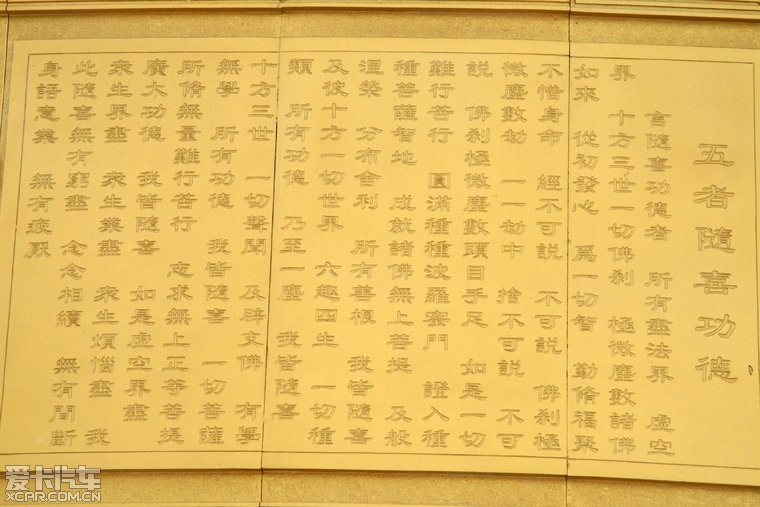 五者隨喜功德
言隨喜功德者 所有盡法界 虛空
界 十方三世一切佛刹 極微塵數諸佛
如來 從初發心 爲一切智 勤脩福聚
不惜身命 經不可説 不可説 佛刹極
微塵數劫 一一劫中 捨不可説 不可
説 佛刹極微塵數頭目手足 如是一切
難行苦行 圓滿種種波羅蜜門 證入種
種菩薩智地 成就諸佛無上菩提 及般
涅槃 分布舍利 所有善根 我皆隨喜
及彼十方一切世界 六趣四生 一切種
類 所有功德 乃至一塵 我皆隨喜
十方三世 一切聲聞 及辟支佛 有學
無學 所有功德 我皆隨喜 一切菩薩
所脩無量難行苦行 志求無上正等菩提
廣大功德 我皆隨喜 如是虛空界盡
衆生界盡 衆生業盡 衆生煩惱盡 我
此隨喜無有窮盡 念念相續 無有間斷
身語意業 無有疲厭
爱卡汽车
XCAR.COM.CN